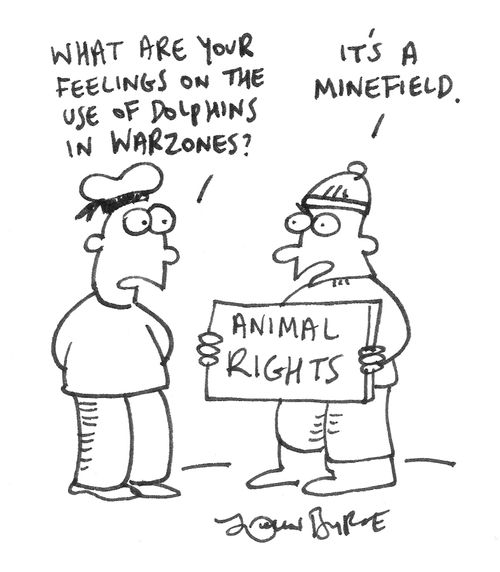 WHAT ARE YOUR
FEELINGS ON THE
USE OF DOLPHINS
IN WARZONES?
IT'S A
MINEFIELD.
ANIMAL
RIGHTS
John Byrne